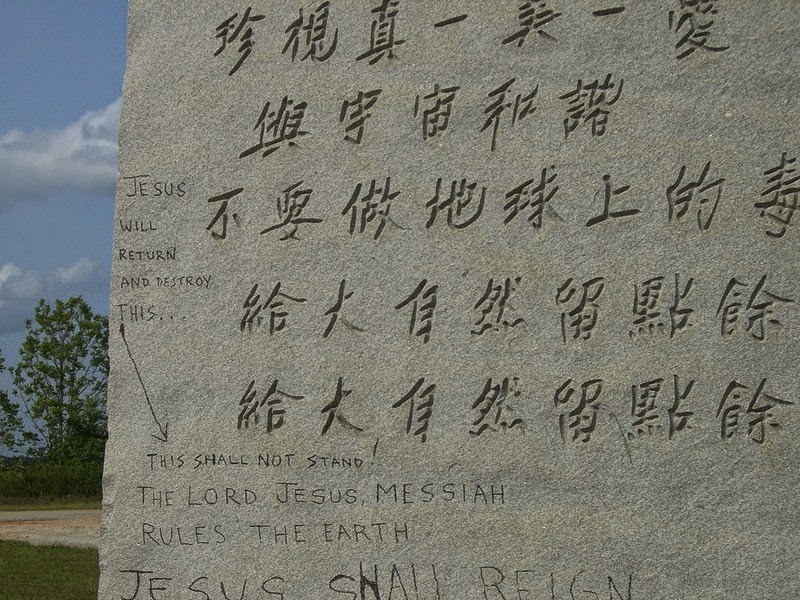 珍視真一美一愛
與宇宙和諧
不要做地球上的毒
給大自然留點餘
給大自然留點餘
JESUS
WILL
RETURN
AND DESTROY
THIS...
THIS SHALL NOT STAND!
THE LORD JESUS, MESSIAH
RULES THE EARTH
JESUS SHALL REIGN